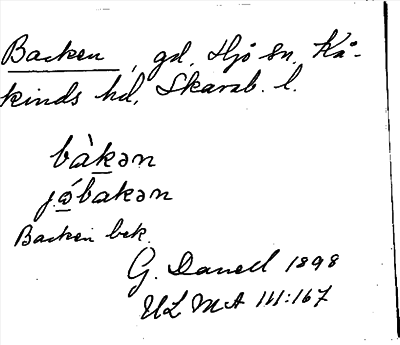 Backen, gd, Hjo sn, Kå-
kinds hd, Skarab. l.
bàkən
jǿbakən
Backen bek.
G. Danell 1898
ULMA 111:167